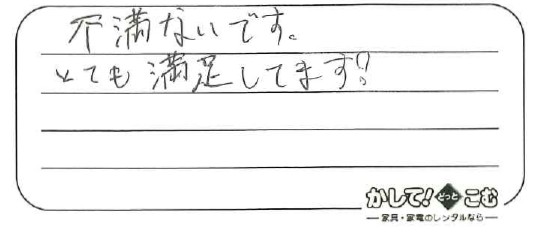 不満ないです。
とても満足してます!!
かして!どっとこむ
家具・家電のレンタルなら